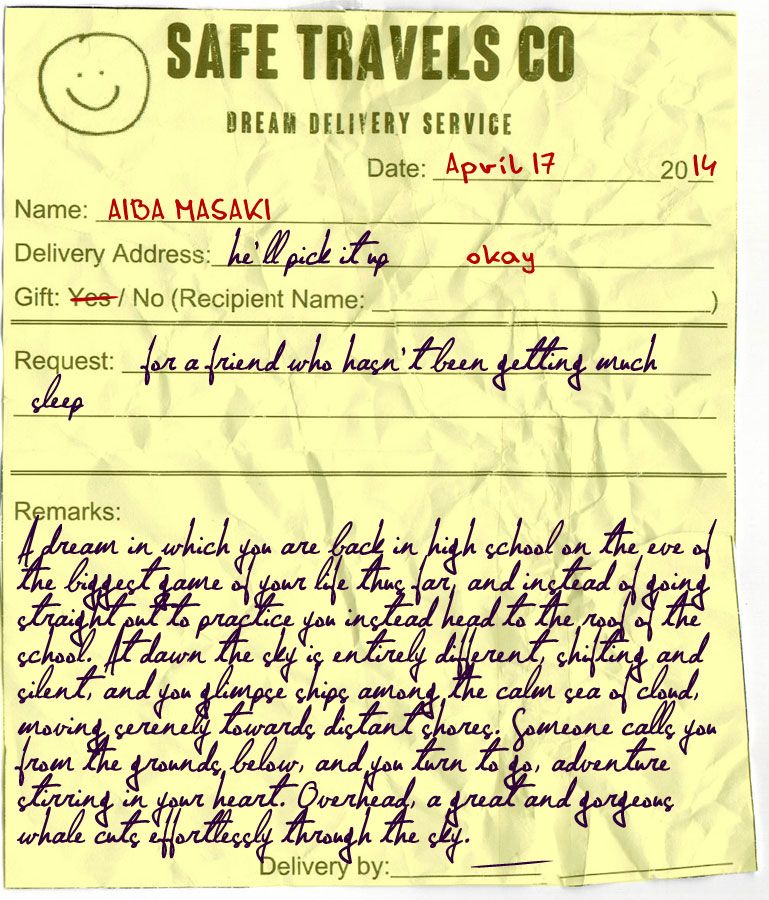 SAFE TRAVELS CO
DREAM DELIVERY SERVICE
Date: April 17 2014
Name: AIBA MASAKI
Delivery Address: he'll pick it up okay
Gift: Yes / No (Recipient Name: )
Request: for a friend who hasn't been getting much
sleep
Remarks:
A dream in which you are back in high school on the eve of
the biggest game of your life thus far, and instead of going
straight out to practice you instead head to the roof of the
school. At dawn the sky is entirely different, shifting and
silent, and you glimpse ships among the calm sea of cloud,
moving serenely towards distant shores. Someone calls you
from the grounds below, and you turn to go, adventure
stirring in your heart. Overhead, a great and gorgeous
whale cuts effortlessly through the sky.
Delivery by: